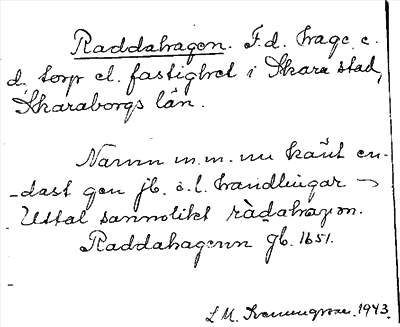 Raddahagen. F.d. hage e.
d. torp el. fastighet i Skara stad,
Skaraborgs län.
Namn m.m. nu känt en-
dast gen jb. o.l. handlingar
Uttal sannolikt
Raddahagenn jb. 1651.
1943.